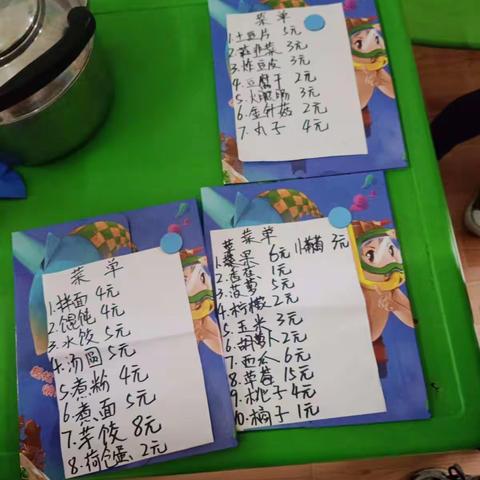 菜单
1.土豆片 5元
2.韭菜 3元
3.炸豆皮 3元
4.豆腐干 2元
5.火腿肠 3元
6.金针菇 2元
7.丸子 4元
菜单
1.拌面 4元
2.馄饨 4元
3.水饺 5元
4.汤圆 5元
5.煮粉 4元
6.煮面 5元
7.芋饺 8元
8.荷包蛋 2元
菜单
1.苹果 6元
2.香蕉 1元
3.菠萝 5元
4.柠檬 2元
5.玉米 3元
6.胡萝卜 2元
7.西瓜 6元
8.草莓 15元
9.桃子 4元
10.橘子 1元
11. 3元